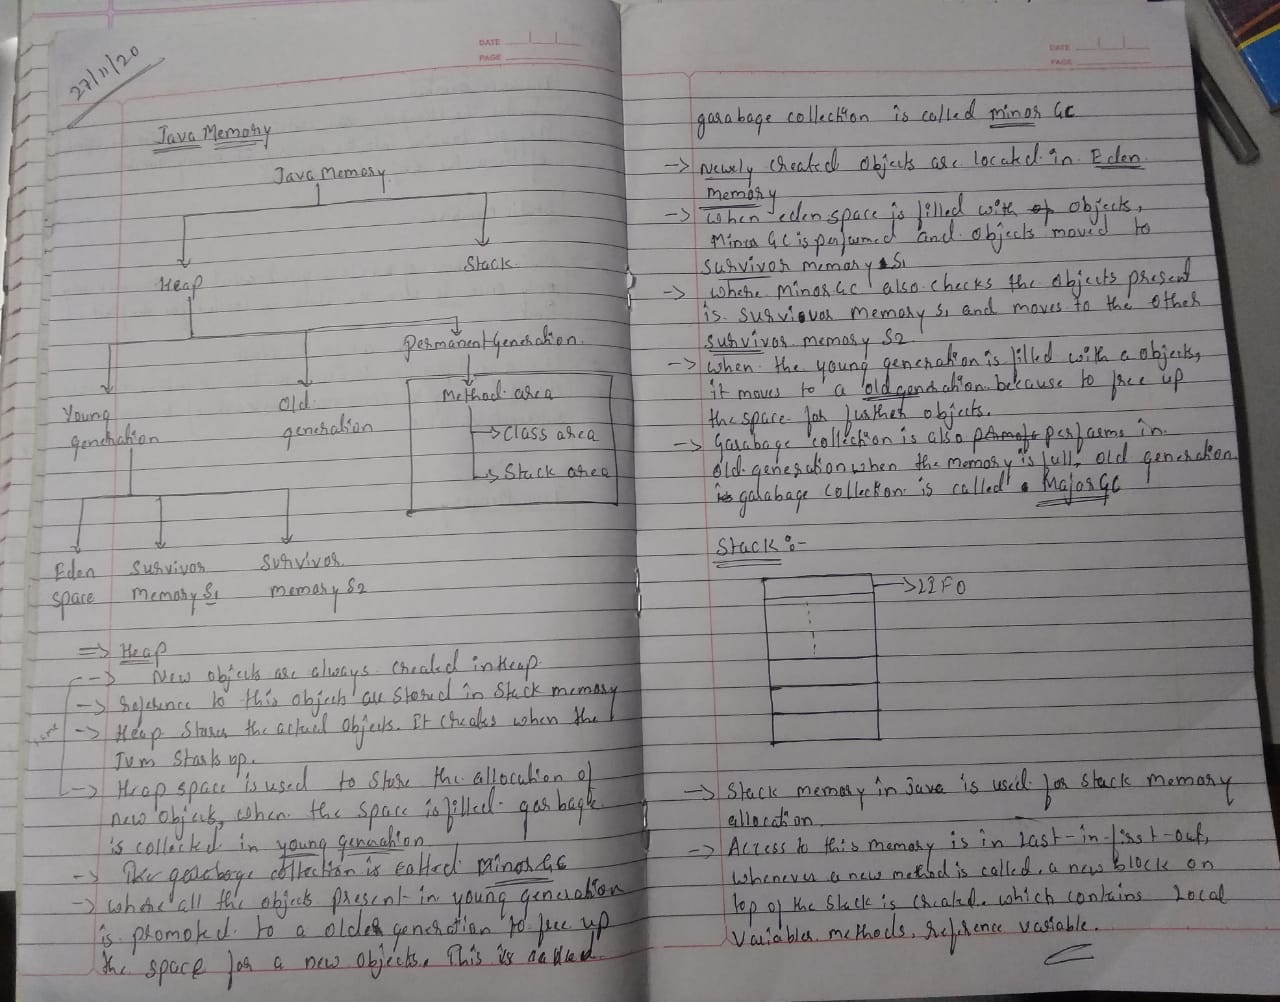 27/11/20
DATE
PAGE
Java Memory
Java Memory
Heap
Stack
Permanent Generation
Young
generation
Old
generation
Method area
Class area
Stack area
Eden
space
Survivor
Memory S1
Survivor
memory S2
=> Heap
-> New objects are always created in Heap.
-> Reference to this object are stored in Stack memory
-> Heap Stores the actual objects. It creates when the
Jvm Starts up.
-> Heap space is used to store the allocation of
new object, when the space is filled garbage
is collected in young generation
-> garabage collection is called Minor GC
-> where all the objects present in young generation
is promoted to a older generation to free up
the space for a new objects. This is called
DATE
PAGE
garabage collection is called minor GC
-> Newly created objects are located in Eden
memory
-> When eden space is filled with objects,
Minor GC is performed and objects moved to
survivor memory S1
-> where Minor GC also checks the objects present
is surviovor memory S1 and moves to the other
survivor memory S2
-> When the young generation is filled with a objects,
it moves to a old generation because to free up
the space for further objects.
-> Garabage collection is also performs in
old generation when the memory is full, old generation
garabage collection is called Major GC
Stack :-
-> LIFO
-> Stack memory in Java is used for stack memory
allocation
-> Access to this memory is in Last-in-first-out,
whenever a new method is called, a new block on
top of the stack is created which contains Local
Variables, methods, reference variable.